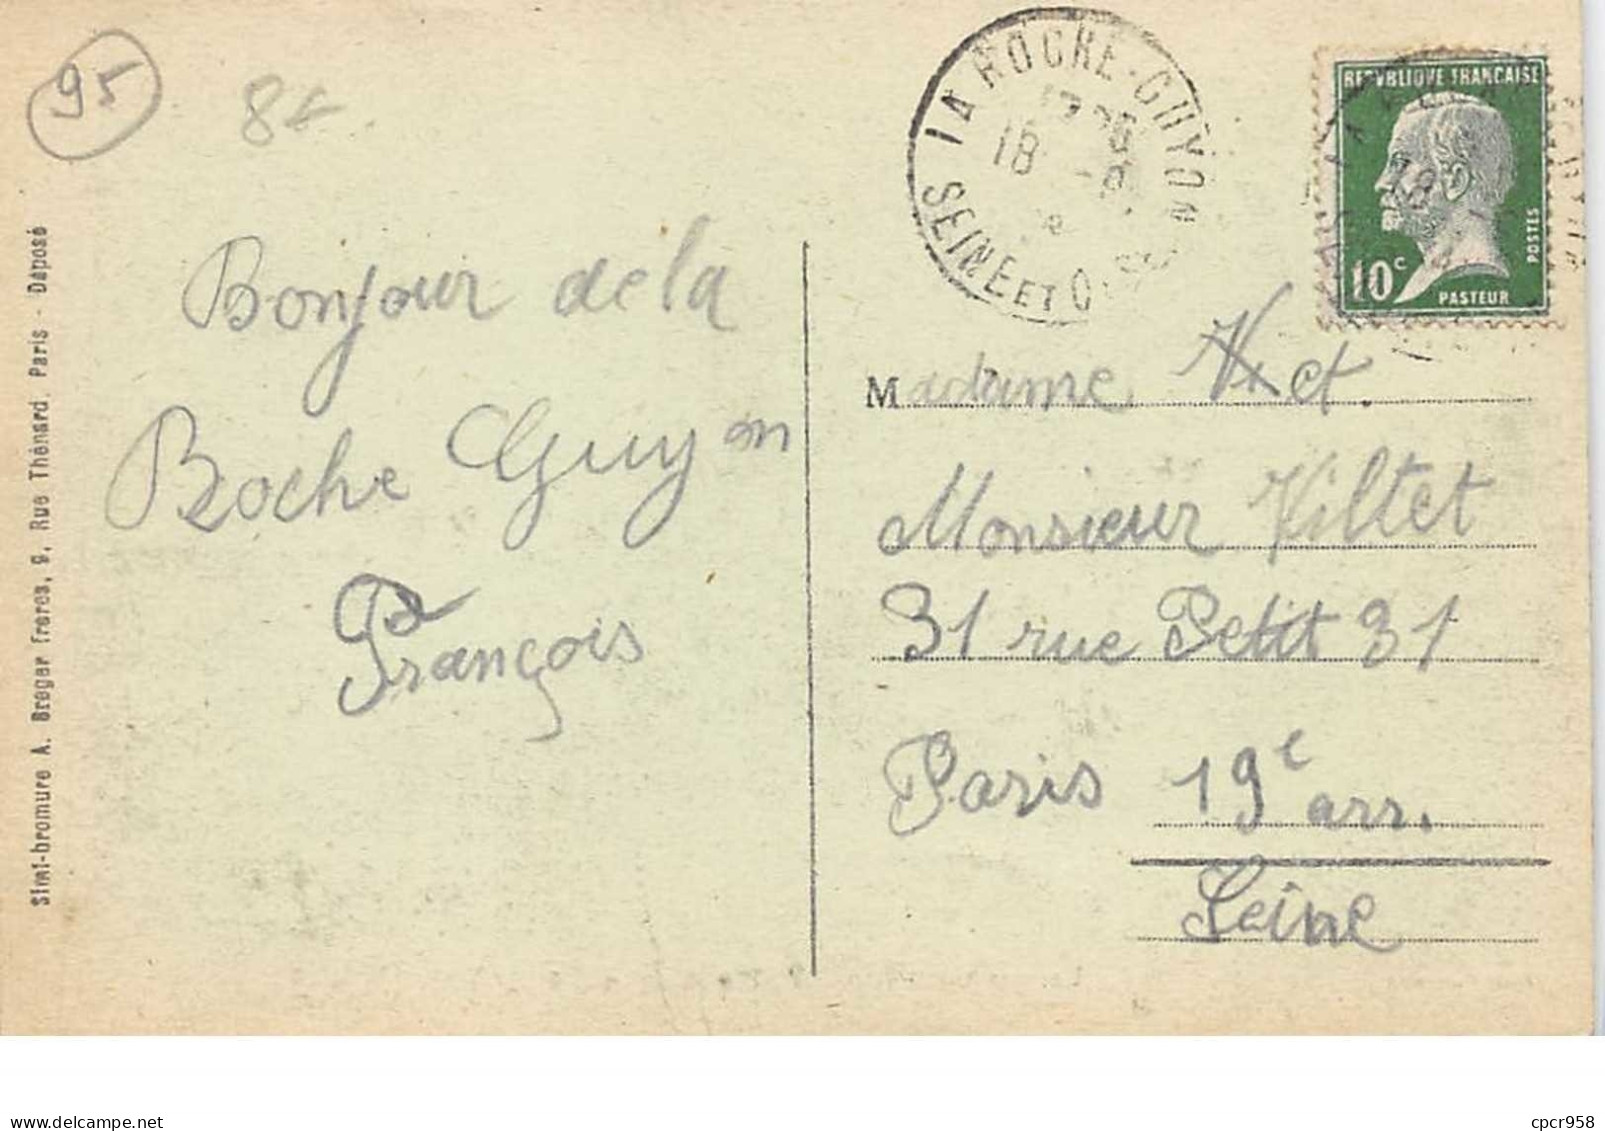 95
8€
LA ROCHE-GUYON
18
SEINE ET O
REPUBLIQUE FRANÇAISE
10c
POSTES
PASTEUR
Bonjour de la
Roche Guyon
François
Madame et
Monsieur Viltet
31 rue Petit 31
Paris 19e arr.
Seine
Simi-bromure A. Breger frères, 9, Rue Thénard. Paris - Déposé
cpcr958